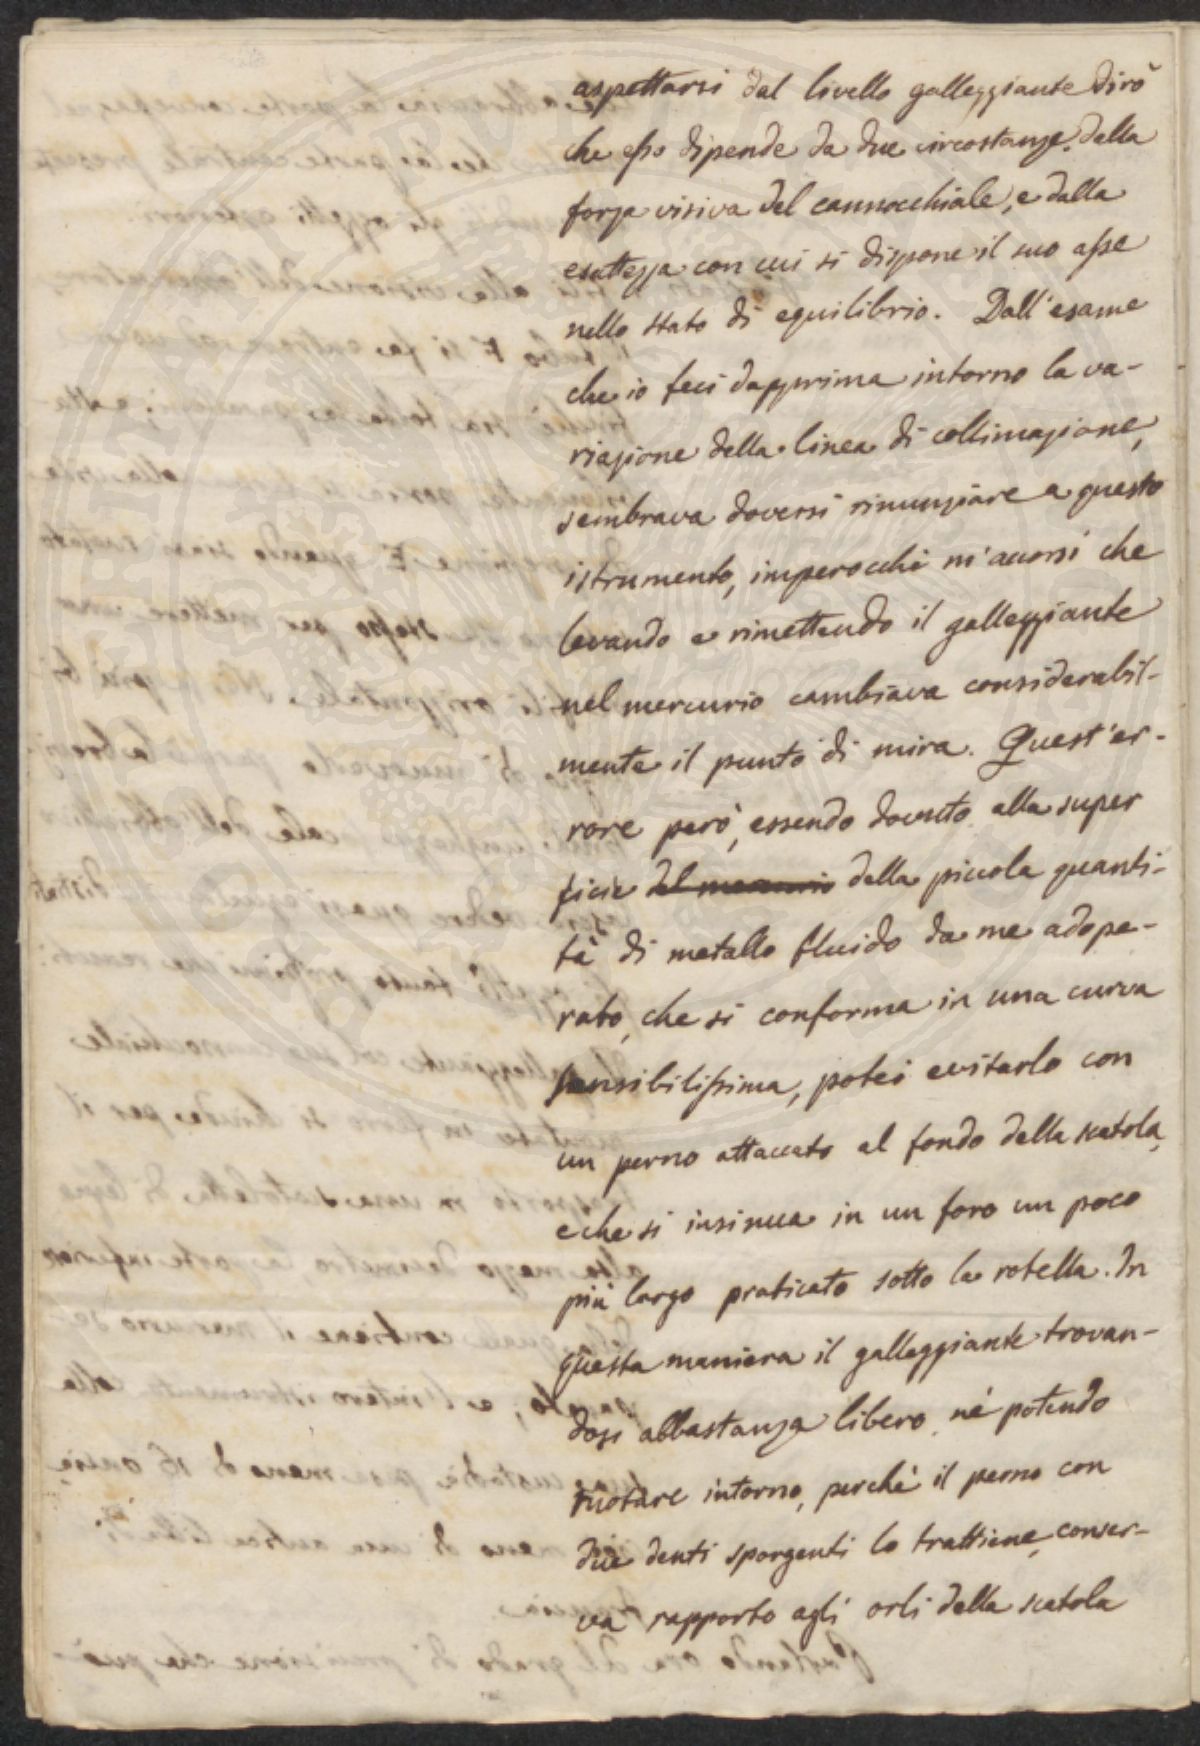 aspettarsi dal livello galleggiante dirò
che esso dipende da due circostanze, dalla
forza visiva del cannocchiale, e dalla
esattezza con cui si dispone il suo asse
nello stato di equilibrio. Dall'esame
che io feci dapprima intorno la va-
riazione della linea di collimazione,
sembrava doversi rinunziare a questo
istrumento, imperocchè m'accorsi che
levando e rimettendo il galleggiante
nel mercurio cambiava considerabil-
mente il punto di mira. Quest'er-
rore però, essendo dovuto alla super
ficie del mercurio della piccola quanti-
tà di metallo fluido da me adope-
rato, che si conforma in una curva
sensibilissima, potei evitarlo con
un perno attaccato al fondo della scatola,
e che si insinua in un foro un poco
più largo praticato sotto la rotella. In
questa maniera il galleggiante trovan-
dosi abbastanza libero, nè potendo
ruotare intorno, perchè il perno con
due denti sporgenti lo trattiene, conser-
va rapporto agli orli della scatola